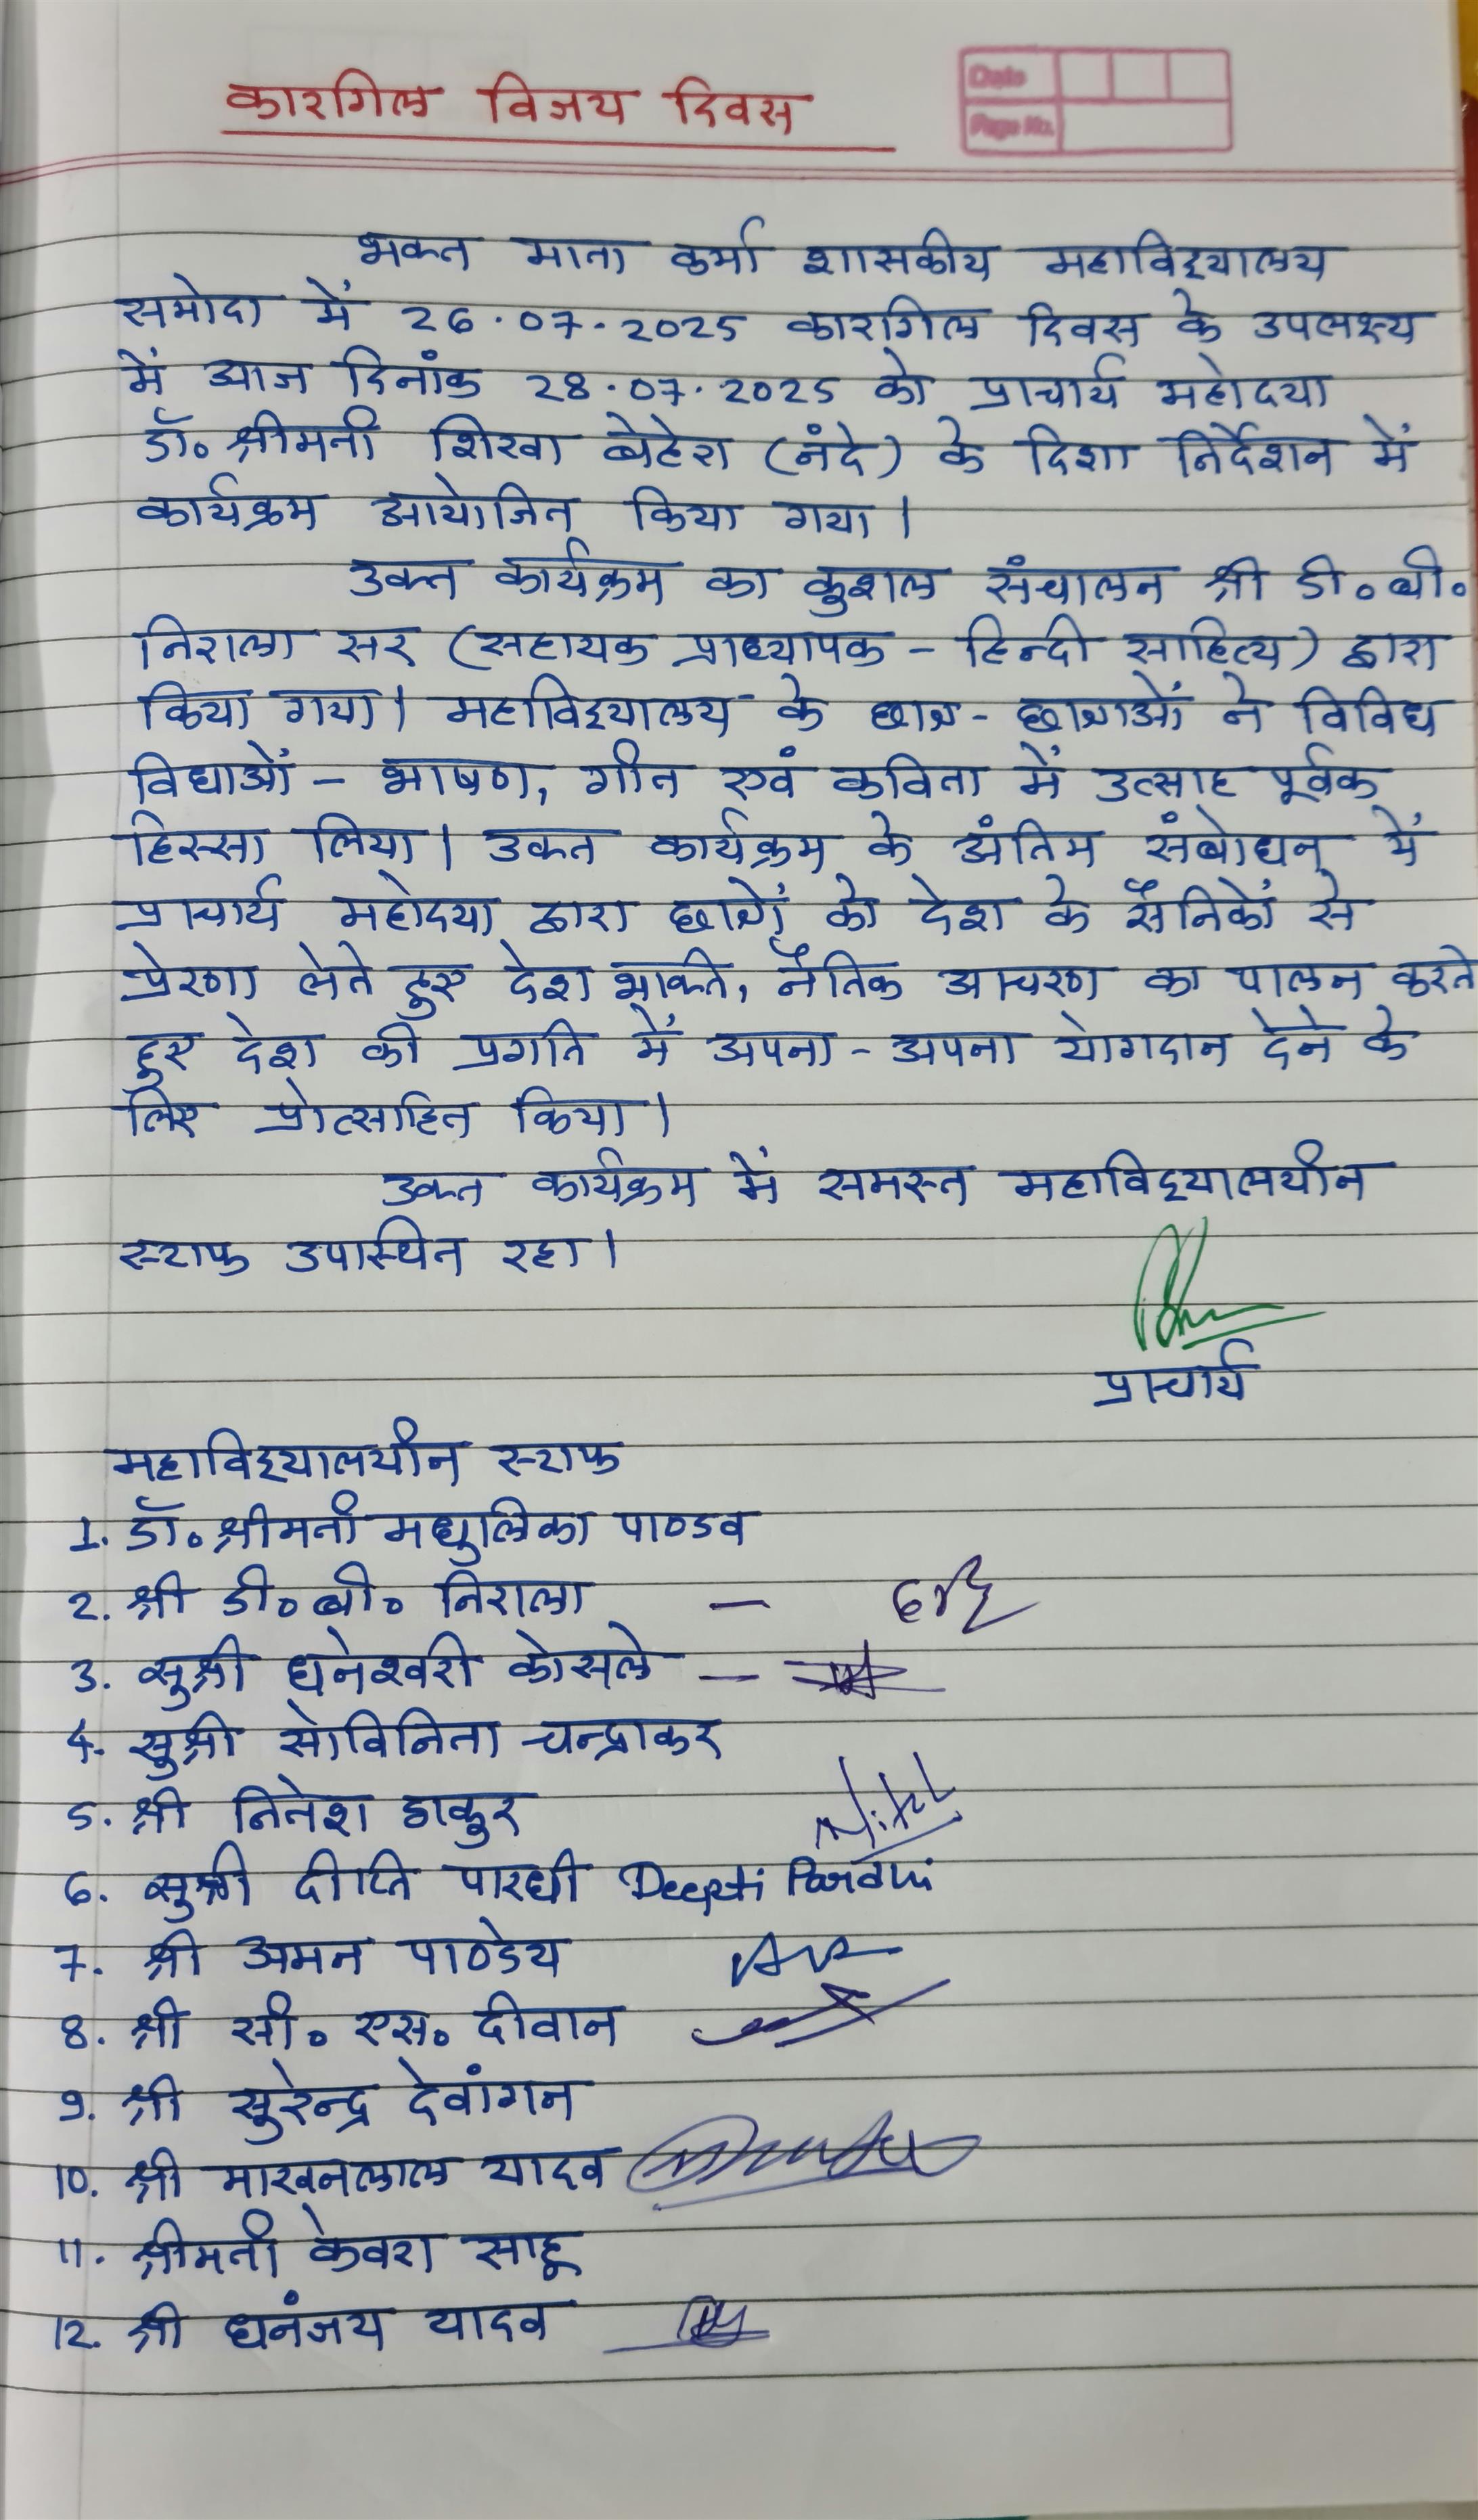 कारगिल विजय दिवस
Date
Page No.
भक्त माता कर्मा शासकीय महाविद्यालय
समोदा में 26.07.2025 कारगिल दिवस के उपलक्ष्य
में आज दिनांक 28.07.2025 को प्राचार्य महोदया
डॉ० श्रीमती शिखा बेहेरा (नंदे) के दिशा निर्देशन में
कार्यक्रम आयोजित किया गया।
उक्त कार्यक्रम का कुशल संचालन श्री डी० बी०
निराला सर (सहायक प्राध्यापक - हिन्दी साहित्य) द्वारा
किया गया। महाविद्यालय के छात्र - छात्राओं ने विविध
विधाओं - भाषण, गीत एवं कविता में उत्साह पूर्वक
हिस्सा लिया। उक्त कार्यक्रम के अंतिम संबोधन में
प्राचार्य महोदया द्वारा छात्रों को देश के सैनिकों से
प्रेरणा लेते हुए देश भक्ति, नैतिक आचरण का पालन करते
हुए देश की प्रगति में अपना - अपना योगदान देने के
लिए प्रोत्साहित किया।
उक्त कार्यक्रम में समस्त महाविद्यालयीन
स्टाफ उपस्थित रहा।
प्राचार्य
महाविद्यालयीन स्टाफ
1. डॉ० श्रीमती मधुलिका पाण्डव
2. श्री डी० बी० निराला -
3. सुश्री धनेश्वरी कोसले -
4. सुश्री सोविनिता चन्द्राकर
5. श्री नितेश ठाकुर
6. सुश्री दीप्ति पारधी Deepti Pardhi
7. श्री अमन पाण्डेय
8. श्री सी० एस० दीवान
9. श्री सुरेन्द्र देवांगन
10. श्री माखनलाल यादव
11. श्रीमती केवरा साहू
12. श्री धनंजय यादव